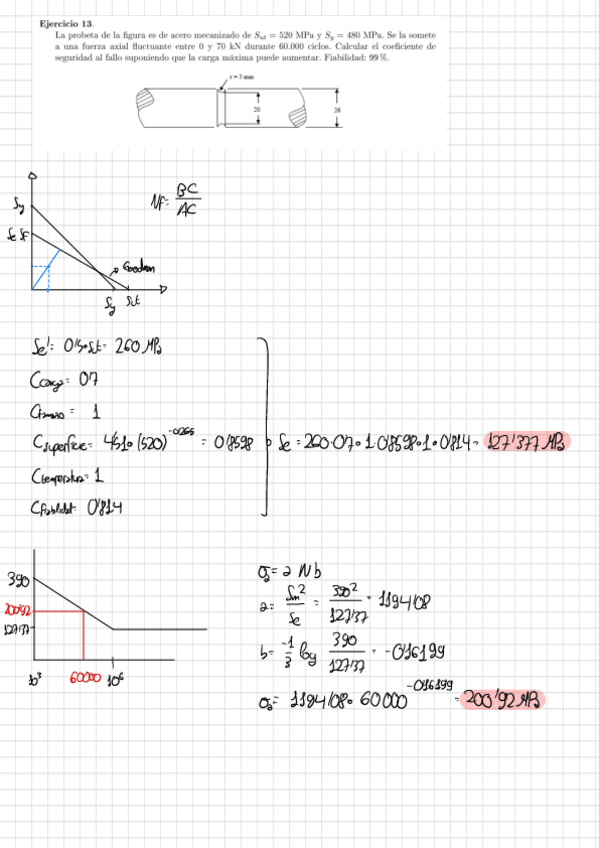 Ejercicio 13.
La probeta de la figura es de acero mecanizado de Sut = 520 MPa y Sy = 480 MPa. Se la somete
a una fuerza axial fluctuante entre 0 y 70 kN durante 60.000 ciclos. Calcular el coeficiente de
seguridad al fallo suponiendo que la carga máxima puede aumentar. Fiabilidad: 99 %.
r = 3 mm
20
26
Sy
Se Sf
Goodman
Sy Sut
NF = BC / AC
Se' = 0'5·Sut = 260 MPa
Ccarga = 0'7
Ctamaño = 1
Csuperficie = 4'51·(520)^-0'265 = 0'8598
Se = 260·0'7·1·0'8598·1·0'814 = 127'377 MPa
Ctemperatura = 1
Cfiabilidad = 0'814
390
200'92
127'37
10³ 60000 10⁶
σa = a N^b
a = Sm² / Se = 390² / 127'37 = 1194'08
b = -1/3 log 390 / 127'37 = -0'16199
σa = 1194'08·60000^-0'16199 = 200'92 MPa